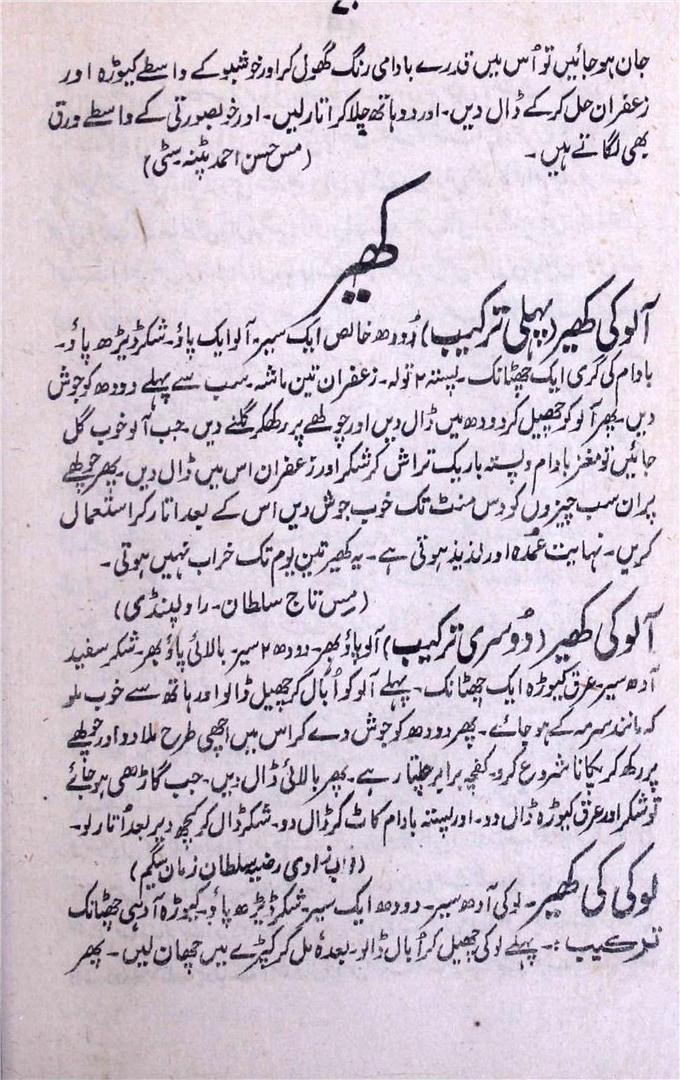 جان ہوجائیں تو اُس میں قدرے بادامی رنگ گھول کر اور خوشبو کے واسطے کیوڑہ اور
زعفران حل کرکے ڈال دیں۔ اور دو ہاتھ چلا کر اتار لیں۔ اور خوبصورتی کے واسطے ورق
بھی لگاتے ہیں۔ (مس حسن احمد پٹنہ سٹی)
کھیر
آلو کی کھیر (پہلی ترکیب) دودھ خالص ایک سیر۔ آلو ایک پاؤ۔ شکر ڈیڑھ پاؤ۔
بادام کی گری ایک چھٹانک۔ پستہ ۲ تولہ۔ زعفران تین ماشہ۔ سب سے پہلے دودھ کو جوش
دیں۔ پھر آلو کو چھیل کر دودھ میں ڈال دیں اور چولھے پر رکھکر گلنے دیں۔ جب آلو خوب گل
جائیں تو مغز بادام و پستہ باریک تراش کر شکر اور زعفران اس میں ڈال دیں۔ پھر چولھے
پر ان سب چیزوں کو دس منٹ تک خوب جوش دیں اس کے بعد اتار کر استعمال
کریں۔ نہایت عُمدہ اور لذیذ ہوتی ہے۔ یہ کھیر تین یوم تک خراب نہیں ہوتی۔
(مِس تاج سلطان۔ راولپنڈی)
آلو کی کھیر (دُوسری ترکیب) آلو پاؤ بھر۔ دودھ ۲ سیر۔ بالائی پاؤ بھر۔ شکر سفید
آدھ سیر۔ عرق کیوڑہ ایک چھٹانک۔ پہلے آلو کو اُبال کر چھیل ڈالو اور ہاتھ سے خوب ملو
کہ مانند سرمہ کے ہو جائے۔ پھر دودھ کو جوش دے کر اس میں اچھی طرح ملا دو اور چولھے
پر رکھ کر پکانا شروع کرو۔ کفچہ برابر چلتا رہے۔ پھر بالائی ڈال دیں۔ جب گاڑھی ہو جائے
تو شکر اور عرق کیوڑہ ڈال دو۔ اور پستہ بادام کاٹ کر ڈال دو۔ شکر ڈال کر کچھ دیر بعد اُتار لو۔
زادی رضیہ سلطان زمان بیگم)
لوکی کی کھیر۔ لوکی آدھ سیر۔ دودھ ایک سیر۔ شکر ڈیڑھ پاؤ۔ کیوڑہ آدہی چھٹانک
ترکیب:۔ پہلے لوکی چھیل کر اُبال ڈالو۔ بعدہٗ مل کر کپڑے میں چھان لیں۔ پھر